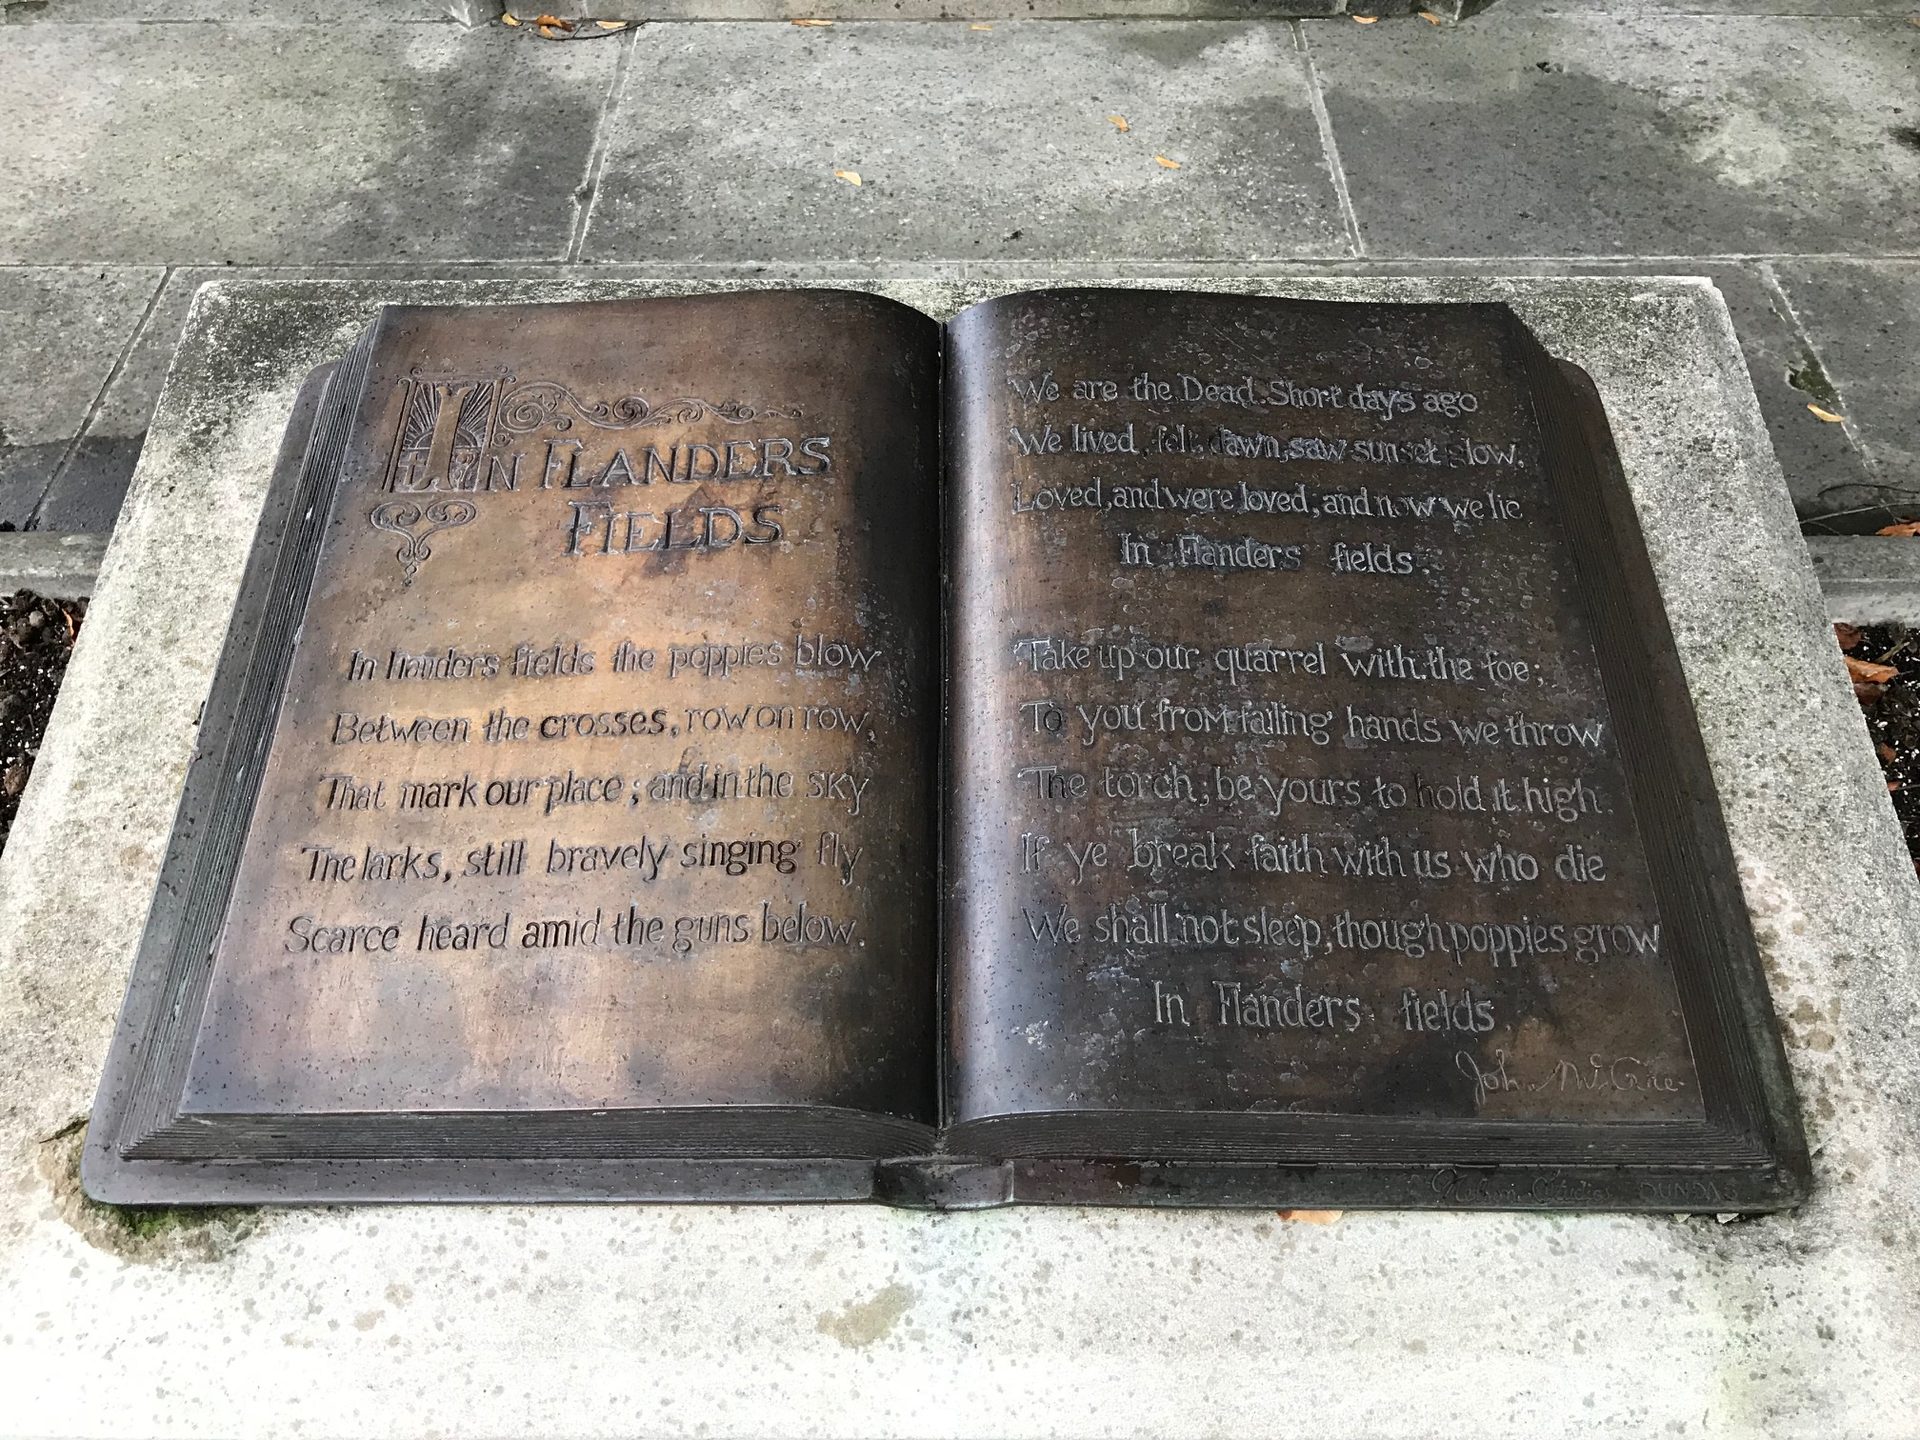 IN FLANDERS
FIELDS
In Flanders fields the poppies blow
Between the crosses, row on row,
That mark our place; and in the sky
The larks, still bravely singing fly
Scarce heard amid the guns below.
We are the Dead. Short days ago
We lived, felt dawn, saw sunset glow,
Loved, and were loved, and now we lie
In Flanders fields.
Take up our quarrel with the foe;
To you from failing hands we throw
The torch; be yours to hold it high.
If ye break faith with us who die
We shall not sleep, though poppies grow
In Flanders fields.
John McCrae
DUNDAS